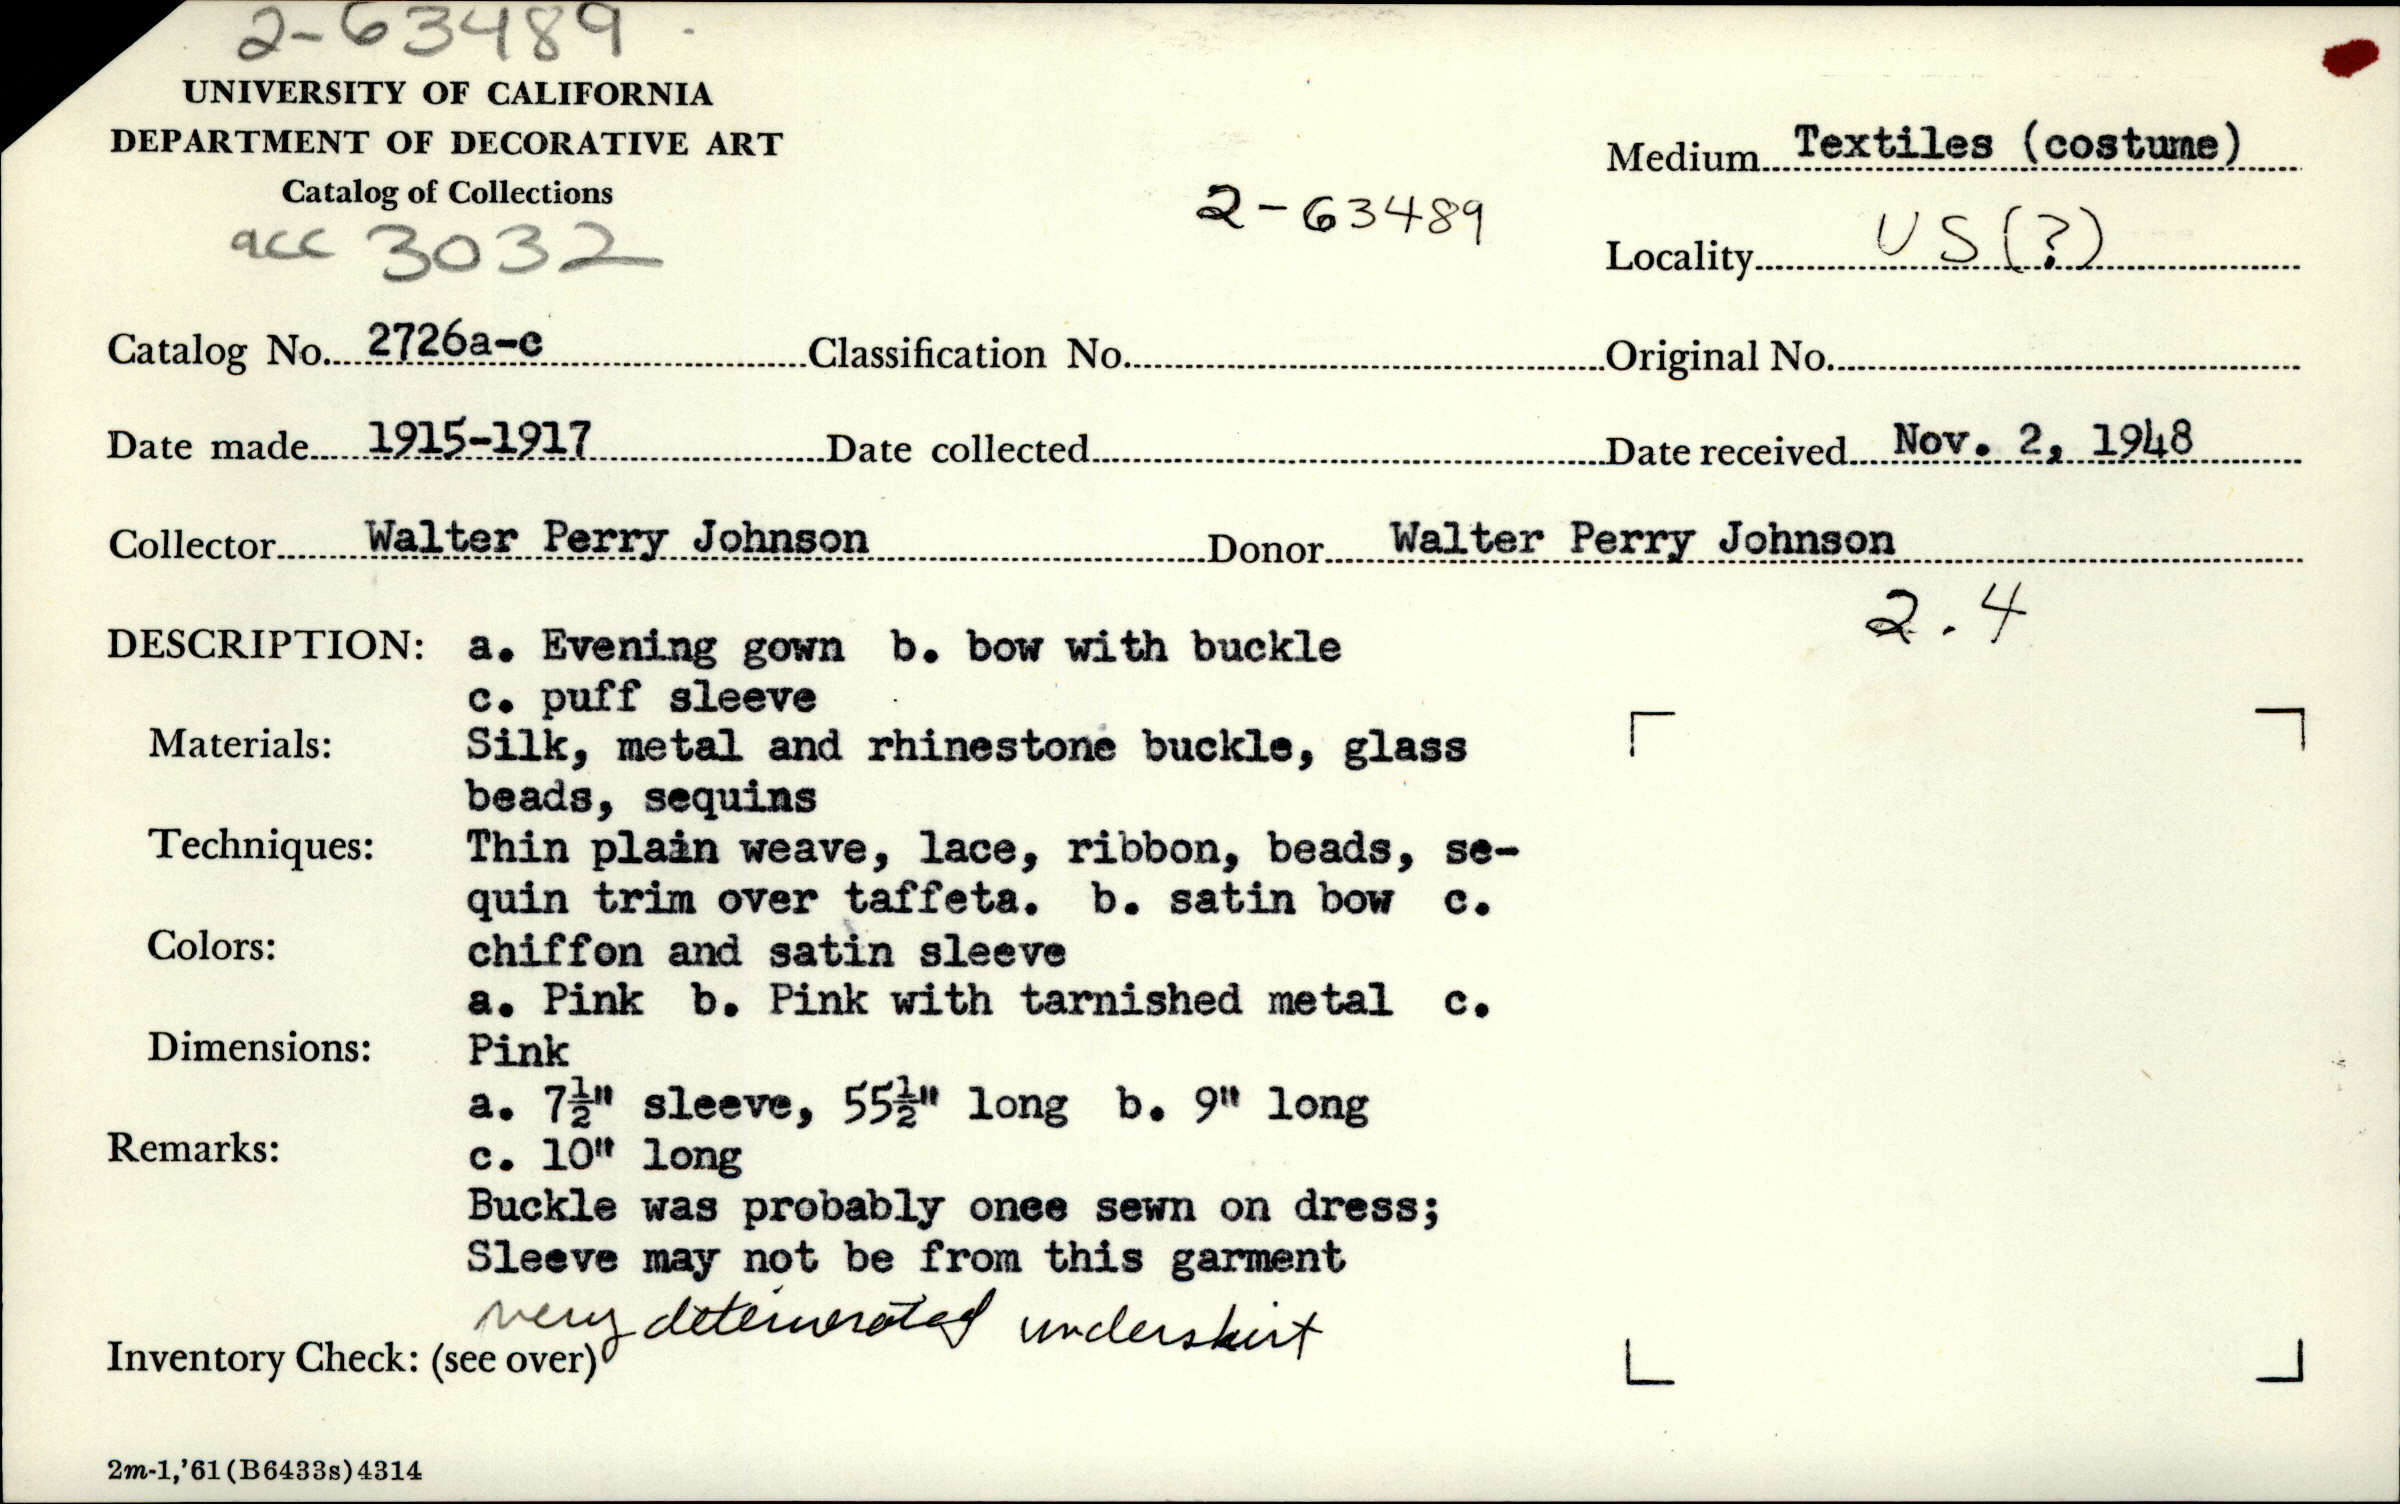 2-63489
UNIVERSITY OF CALIFORNIA
DEPARTMENT OF DECORATIVE ART
Catalog of Collections
acc 3032
2-63489
Medium Textiles (costume)
Locality US (?)
Catalog No. 2726a-c Classification No. Original No.
Date made 1915-1917 Date collected Date received Nov. 2, 1948
Collector Walter Perry Johnson Donor Walter Perry Johnson
2.4
DESCRIPTION: a. Evening gown b. bow with buckle
c. puff sleeve
Materials: Silk, metal and rhinestone buckle, glass
beads, sequins
Techniques: Thin plain weave, lace, ribbon, beads, se-
quin trim over taffeta. b. satin bow c.
Colors: chiffon and satin sleeve
a. Pink b. Pink with tarnished metal c.
Dimensions: Pink
a. 7½" sleeve, 55½" long b. 9" long
Remarks: c. 10" long
Buckle was probably once sewn on dress;
Sleeve may not be from this garment
very deteriorated underskirt
Inventory Check: (see over)
2m-1,'61(B6433s)4314